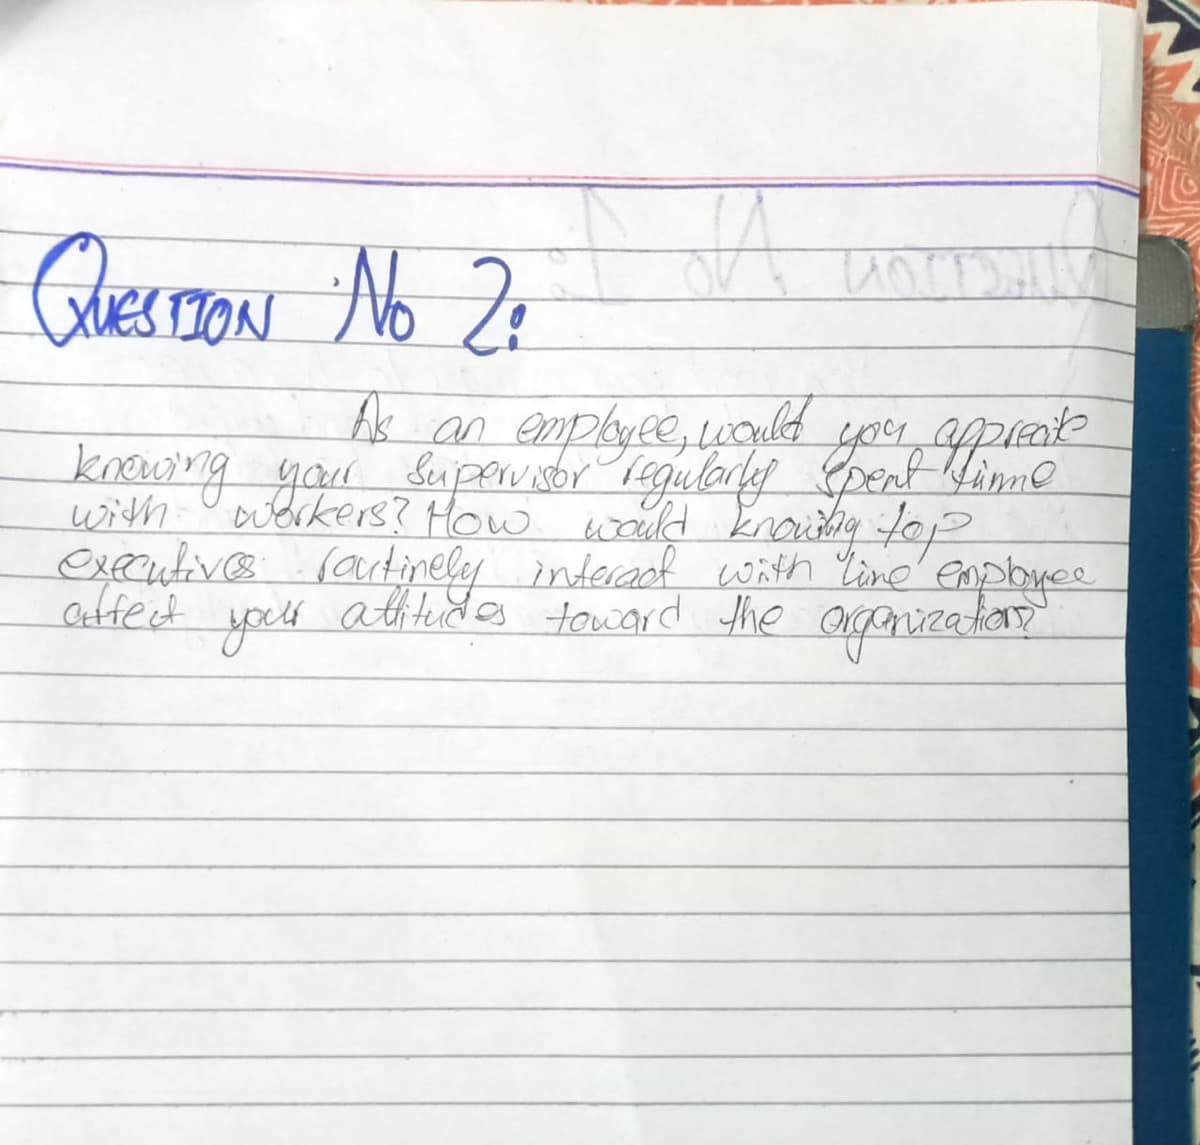 QUESTION No 2:
As an employee, would you appreciate
knowing your supervisor regularly spent time
with workers? How would knowing top
executives routinely interact with line employee
affect your attitudes toward the organization?